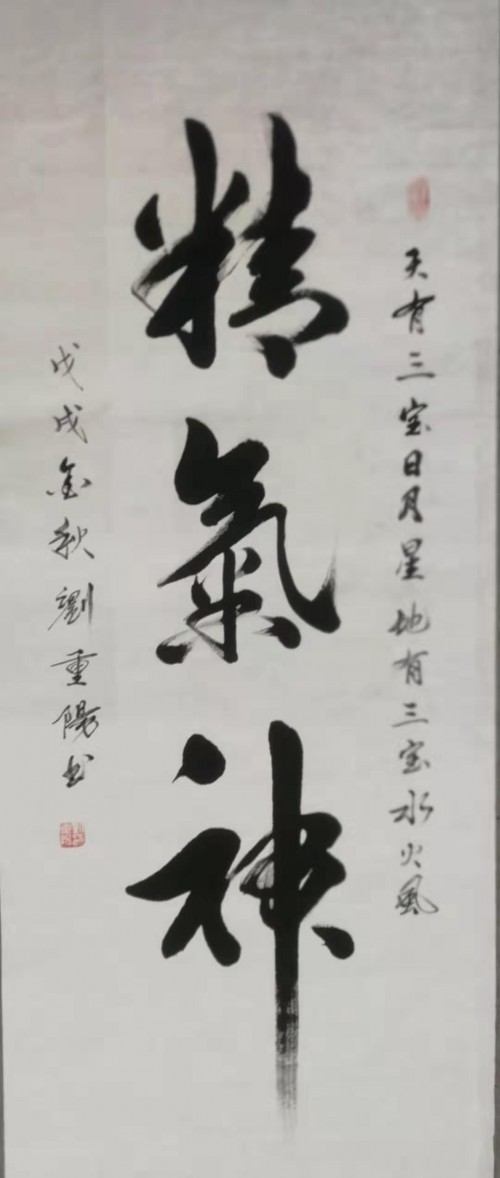 天有三宝日月星地有三宝水火風
精氣神
戊戌金秋劉重陽书